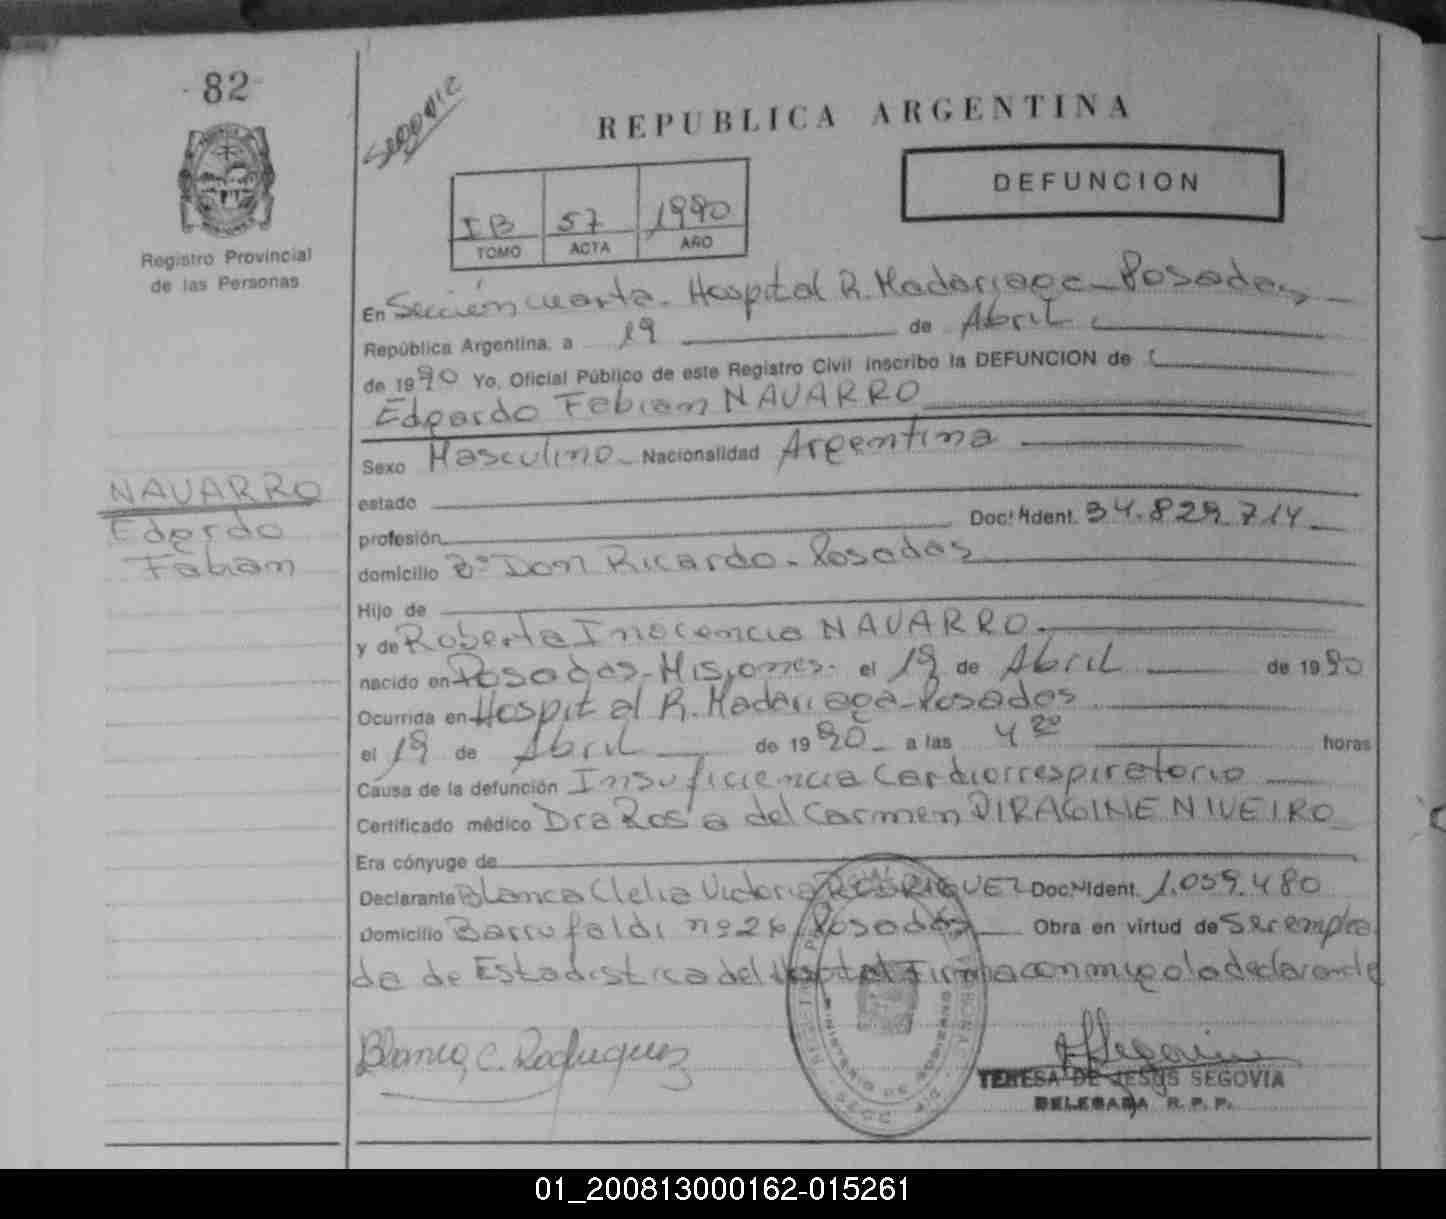 82
Segovia
REPUBLICA ARGENTINA
DEFUNCION
IB 57 1990
TOMO ACTA AÑO
Registro Provincial
de las Personas
En Sección cuarta - Hospital R. Madariaga - Posadas
República Argentina, a 19 de Abril
de 1990 Yo, Oficial Público de este Registro Civil inscribo la DEFUNCION de
Edgardo Fabian NAVARRO
Sexo Masculino - Nacionalidad Argentina
NAVARRO
Edgardo
Fabian
estado
profesión Doc. Ident. 34.829.714
domicilio Bº Don Ricardo - Posadas
Hijo de
y de Roberta Inocencia NAVARRO
nacido en Posadas - Misiones - el 19 de Abril de 1990
Ocurrida en Hospital R. Madariaga - Posadas
el 19 de Abril de 1990 a las 4 horas
Causa de la defunción Insuficiencia Cardiorrespiratorio
Certificado médico Dra Rosa del Carmen DIRAGINE NIVEIRO
Era cónyuge de
Declarante Blanca Clelia Victoria RODRIGUEZ Doc. Ident. 1.059.480
Domicilio Barrufaldi nº 24 Posadas Obra en virtud de Ser emplea
da de Estadistica del Hospital Firma conmigo la declarante
Blanca C. Rodriguez
TERESA DE JESUS SEGOVIA
DELEGADA R. P. P.
01_200813000162-015261